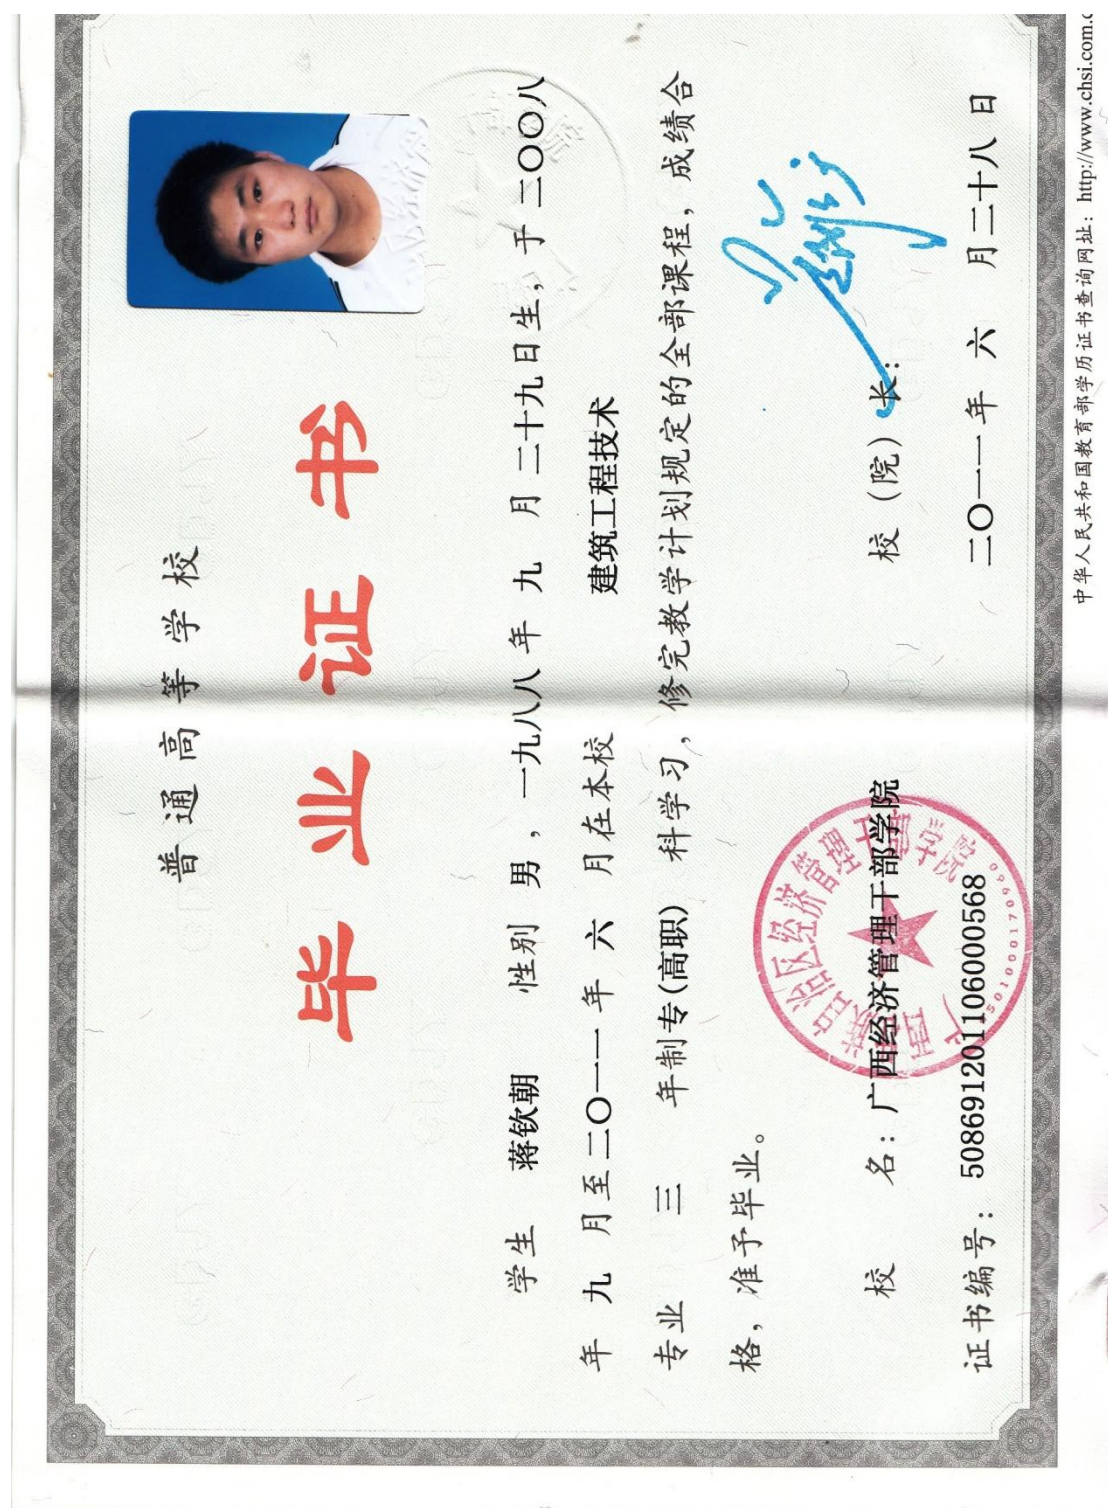 普通高等学校
毕业证书
学生 蒋钦朝 性别 男，一九八八年 九 月 二十九日生，于 二〇〇八
年 九 月至二〇一一年 六 月在本校 建筑工程技术
专业 三 年制专(高职) 科学习，修完教学计划规定的全部课程，成绩合
格，准予毕业。
校 名：广西经济管理干部学院 校（院）长：
证书编号：508691201106000568 二〇一一年 六 月二十八日
中华人民共和国教育部学历证书查询网址：http://www.chsi.com.c
广西壮族自治区经济管理干部学院